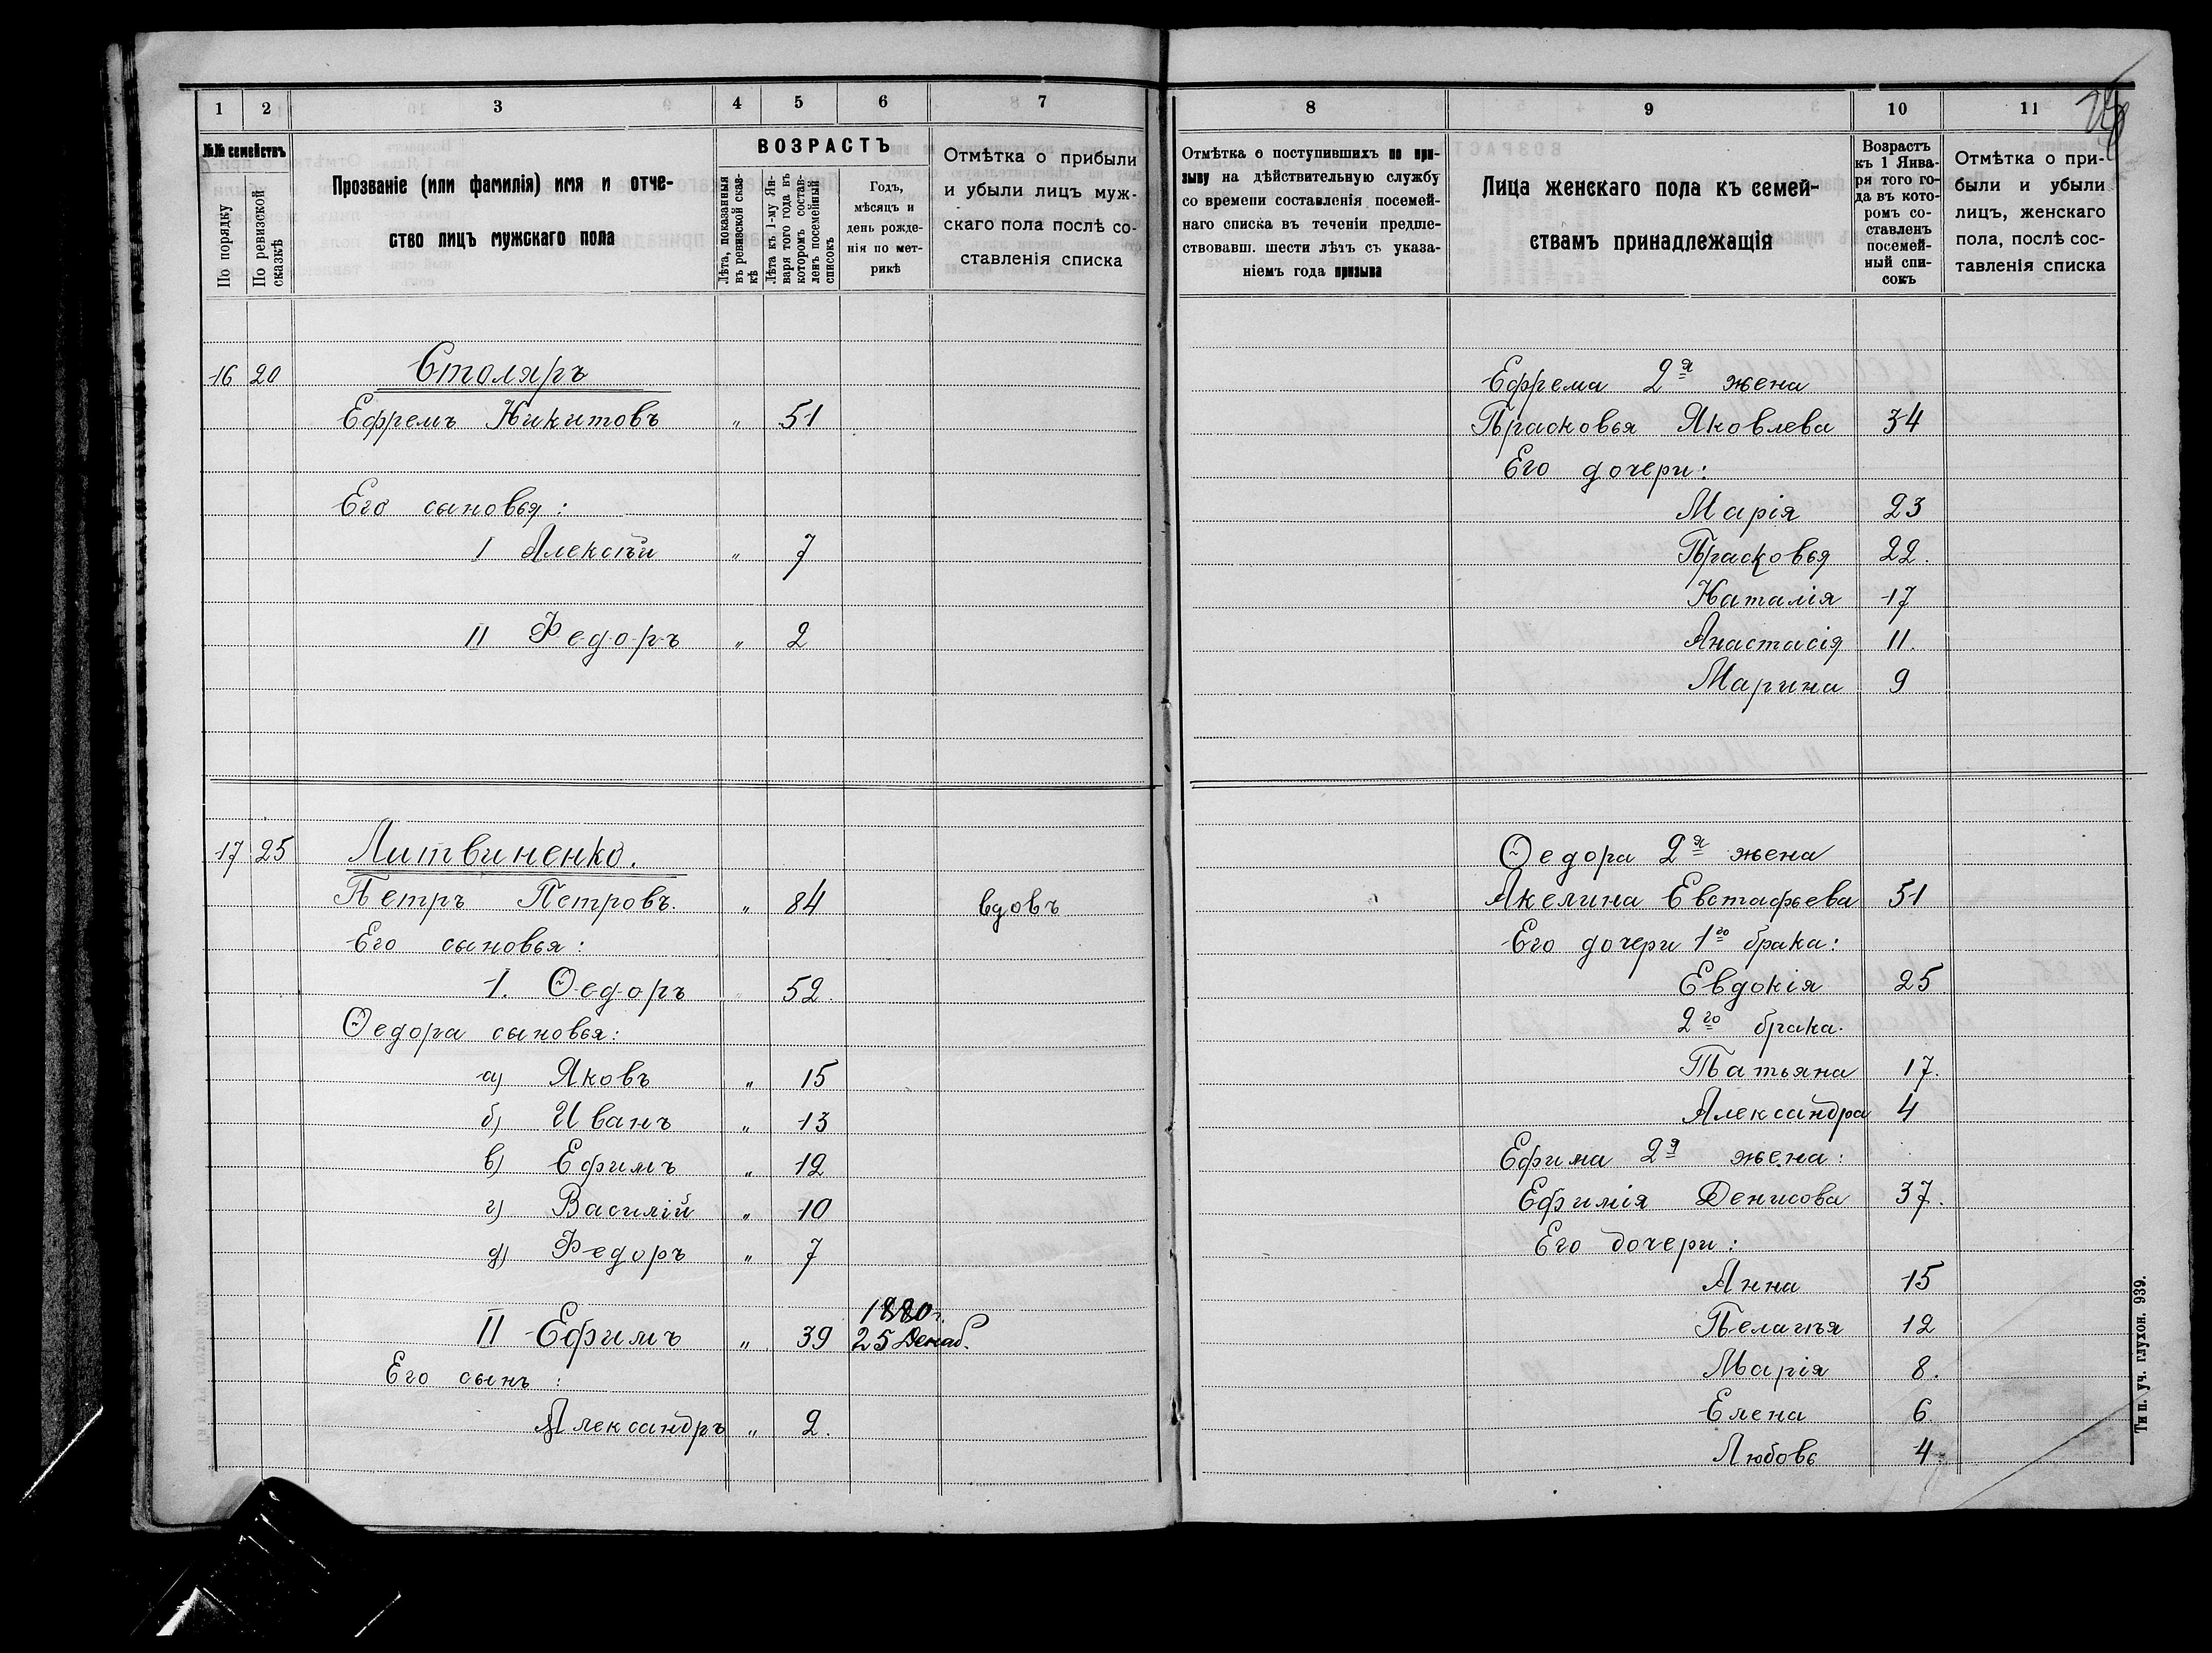 1 2 3 4 5 6 7
№№ семействъ
По порядку
По ревизской сказкѣ
Прозваніе (или фамилія) имя и отче-
ство лицъ мужскаго пола
ВОЗРАСТЪ
Лѣта, показанныя въ ревизской сказ-кѣ
Лѣта къ 1-му Ян-варя того года въ которомъ состав-ленъ посемейный списокъ
Годъ,
мѣсяцъ и
день рожде-
нія по мет-
рикѣ
Отмѣтка о прибыли
и убыли лицъ муж-
скаго пола послѣ со-
ставленія списка
16 20 Столяръ
Ефремъ Никитовъ „ 51
Его сыновья:
I Алексѣй „ 7
II Федоръ „ 2
17 25 Литвиненко.
Петръ Петровъ. „ 84 вдовъ
Его сыновья:
I. Ѳедоръ 52.
Ѳедора сыновья:
а) Яковъ „ 15
б) Иванъ „ 13
в) Ефимъ „ 12
г) Василій „ 10
д) Федоръ „ 7
1880 г.
II Ефимъ „ 39 25 Декаб.
Его сынъ:
Александръ „ 2.
8 9 10 11
Отмѣтка о поступившихъ по при-
зыву на дѣйствительную службу
со времени составленія посемей-
наго списка въ теченіи предше-
ствовавш. шести лѣтъ съ указа-
ніемъ года призыва
Лица женскаго пола къ семей-
ствамъ принадлежащія
Возрастъ
къ 1 Янва-
ря того го-
да въ кото-
ромъ со-
ставленъ
посемей-
ный спи-
сокъ
Отмѣтка о при-
были и убыли
лицъ, женскаго
пола, послѣ сос-
тавленія списка
Ефрема 2я жена
Прасковья Яковлева 34
Его дочери:
Марія 23
Прасковья 22.
Наталія 17
Анастасія 11.
Марина 9
Ѳедора 2я жена
Акелина Евстафьева 51
Его дочери 1го брака:
Евдокія 25
2го брака.
Татьяна 17.
Александра 4
Ефима 2я жена:
Ефимія Денисова 37.
Его дочери:
Анна 15
Пелагѣя 12
Марія 8.
Елена 6
Любовь 4
Тип. уч. глухон. 939.